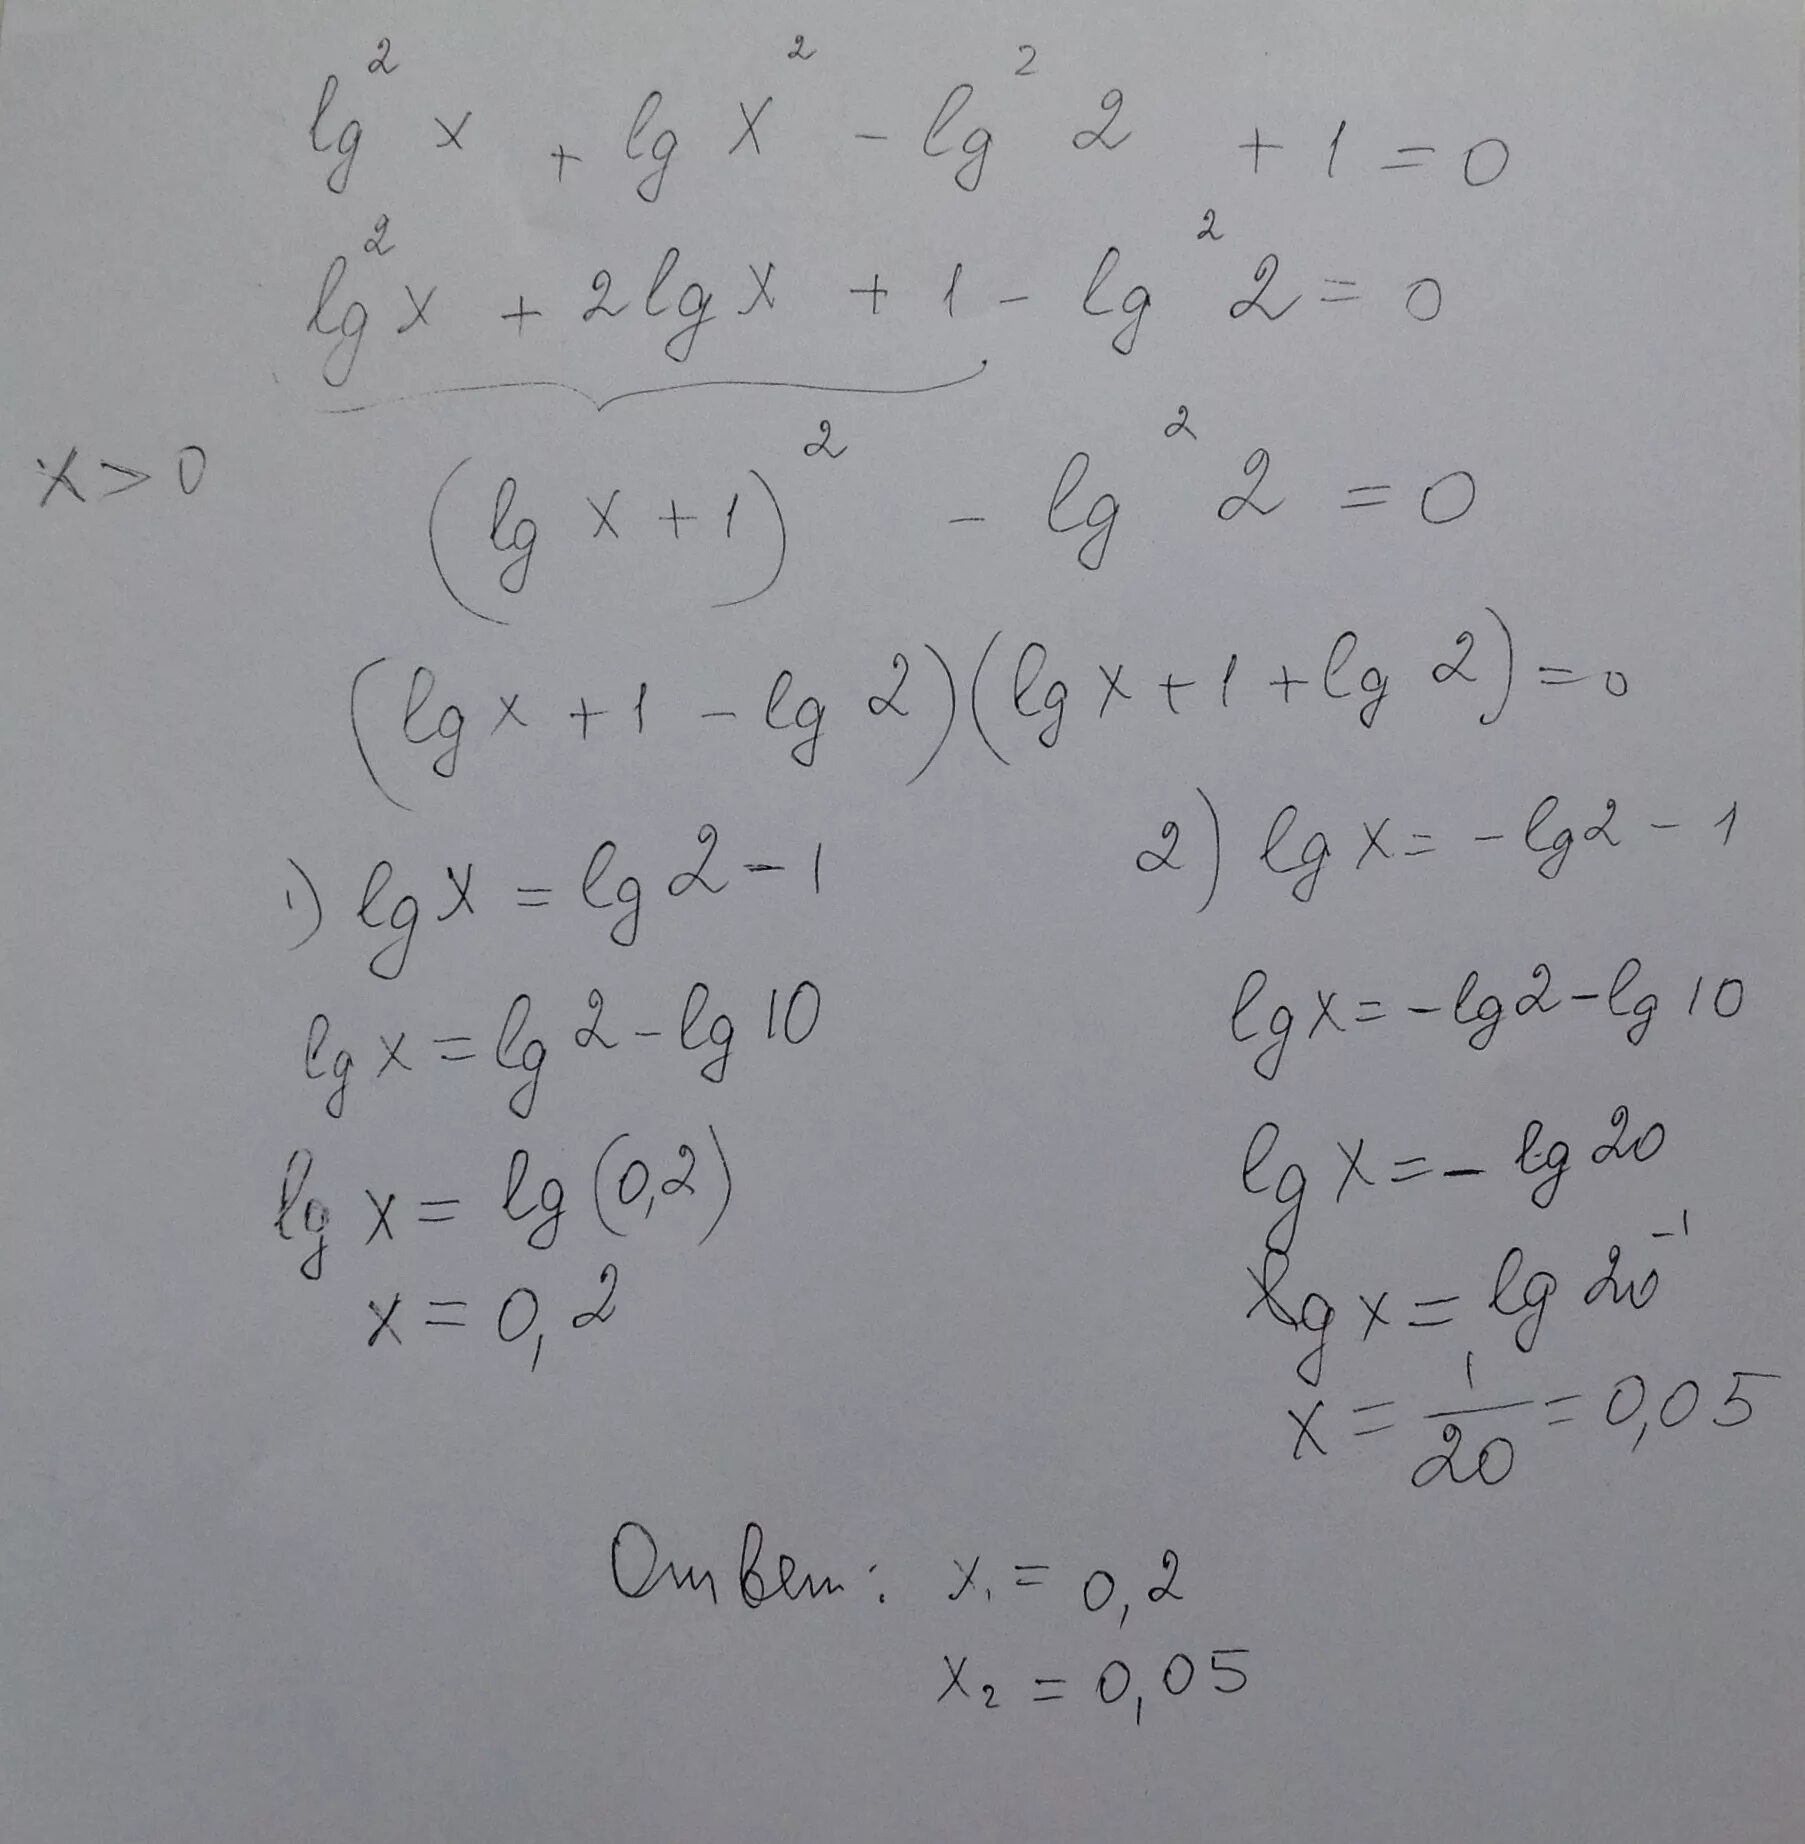 lg² x + lg x² - lg² 2 + 1 = 0
lg² x + 2 lg x + 1 - lg² 2 = 0
x > 0
(lg x + 1)² - lg² 2 = 0
(lg x + 1 - lg 2)(lg x + 1 + lg 2) = 0
1) lg x = lg 2 - 1
lg x = lg 2 - lg 10
lg x = lg (0,2)
x = 0,2
2) lg x = - lg 2 - 1
lg x = - lg 2 - lg 10
lg x = - lg 20
lg x = lg 20⁻¹
x = 1/20 = 0,05
Ответ: x₁ = 0,2
x₂ = 0,05